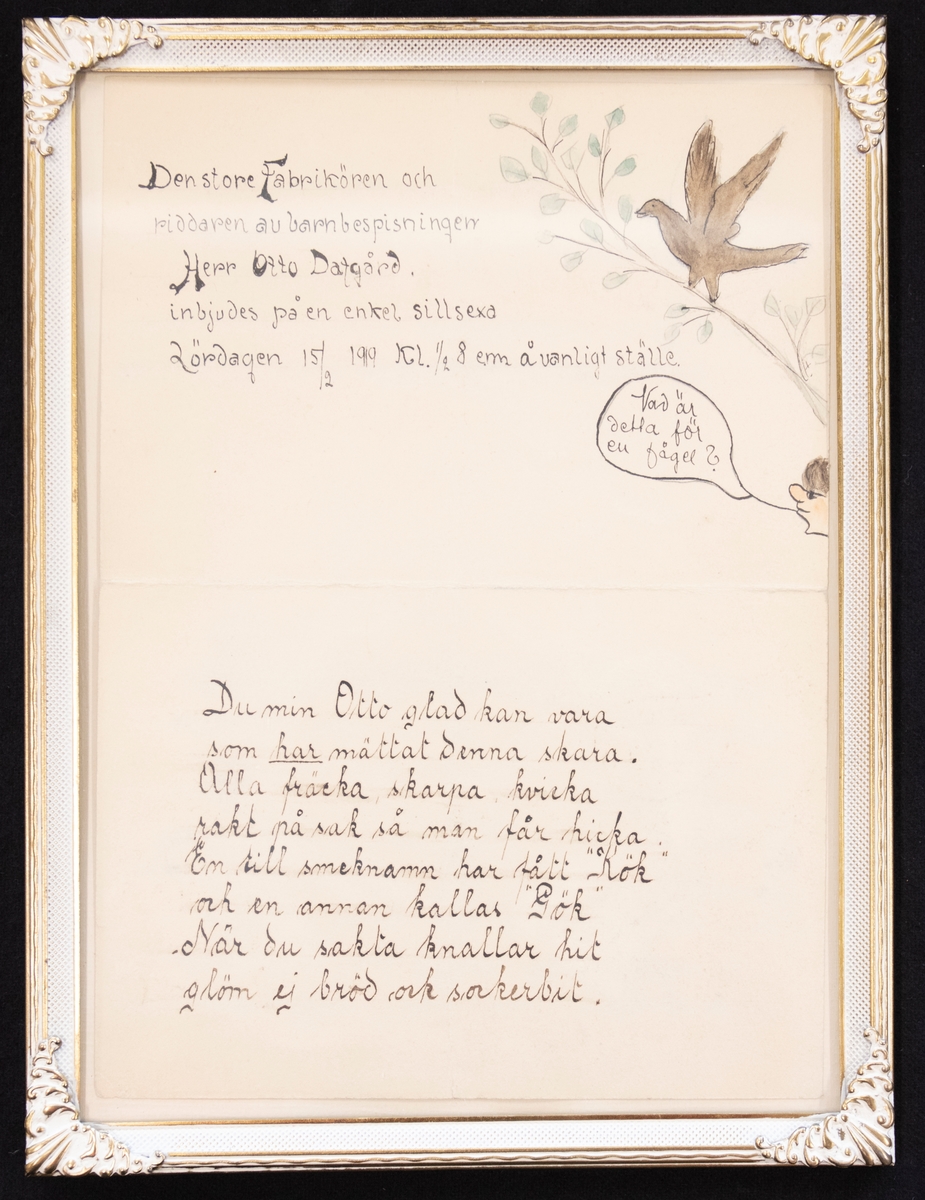 Den store Fabrikören och
riddaren av barnbespisningen
Herr Otto Dafgård.
inbjudes på en enkel sillsexa
Lördagen 15/2 1919 Kl. 1/2 8 em å vanligt ställe.
Vad är
detta för
en fågel?
Du min Otto glad kan vara
som har mättat denna skara.
Alla fräcka, skarpa, kvicka
rakt på sak så man får hicka.
En till smeknamn har fått "Kök"
och en annan kallas "Gök"
När du sakta knallar hit
glöm ej bröd och sockerbit.